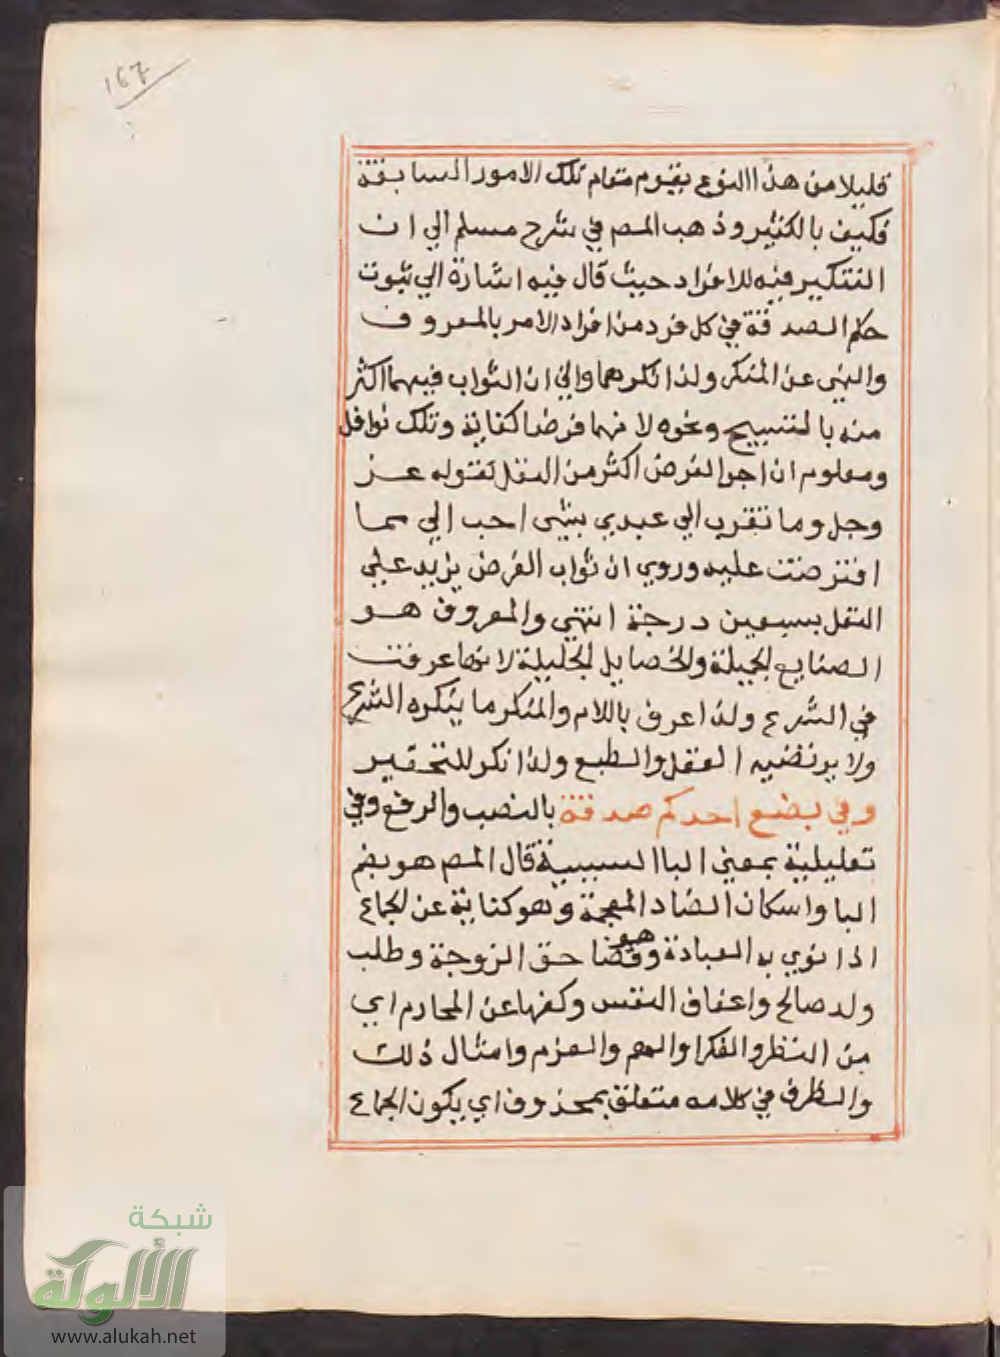 167
قليلا من هذا النوع يقوم مقام تلك الامور السابقة
فكيف بالكثير وذهب المص في شرح مسلم الي ان
التنكير فيه للافراد حيث قال فيه اشارة الي ثبوت
حكم الصدقة في كل فرد من افراد الامر بالمعروف
والنهي عن المنكر ولذا نكرهما والي ان الثواب فيهما اكثر
منه بالتسبيح ونحوه لانهما فرضا كفاية وتلك نوافل
ومعلوم ان اجر الفرض اكثر من النفل لقوله عز
وجل وما تقرب الي عبدي بشي احب الي مما
افترضت عليه وروي ان ثواب الفرض يزيد علي
النفل بسبعين درجة انتهي والمعروف هو
الصنايع الجميلة والخصايل الجليلة لانها عرفت
في الشرع ولذا عرف باللام والمنكر ما ينكره الشرع
ولا يرتضيه العقل والطبع ولذا نكر للتحقير
وفي بضع احدكم صدقة بالنصب والرفع وفي
تعليلية بمعني البا السببية قال المص هو بضم
البا واسكان الضاد المعجمة وهو كناية عن الجماع
اذا نوي به العبادة وهو قضا حق الزوجة وطلب
ولد صالح واعفاف النفس وكفها عن المحارم اي
من النظر والفكر او الهم والعزم وامثال ذلك
والظرف في كلامه متعلق بمحذوف اي يكون الجماع
شبكة
الألوكة
www.alukah.net